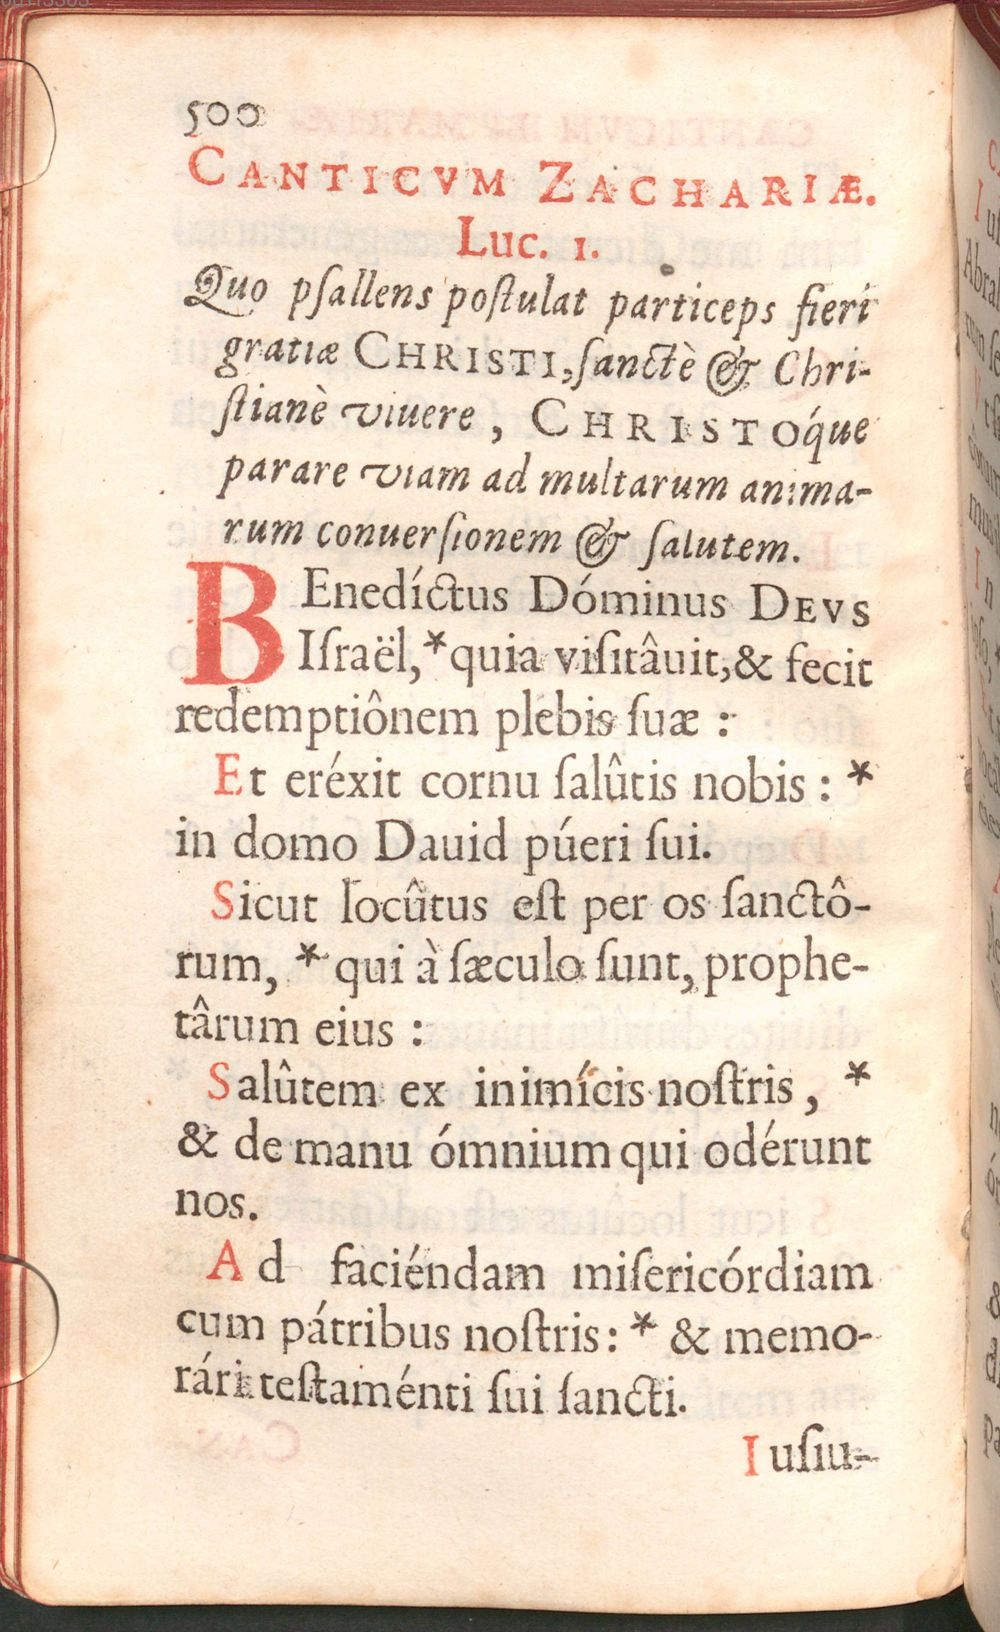 500
CANTICVM ZACHARIÆ.
Luc. 1.
Quo pſallens poſtulat particeps fieri
gratiæ CHRISTI, ſanctè & Chri-
ſtianè viuere, CHRISTÓque
parare viam ad multarum anima-
rum conuerſionem & ſalutem.
BEnedíctus Dóminus DEVS
Iſraël,* quia viſitâuit, & fecit
redemptiônem plebis ſuæ :
Et eréxit cornu ſalûtis nobis : *
in domo Dauid púeri ſui.
Sicut locûtus eſt per os ſanctô-
rum, * qui à ſæculo ſunt, prophe-
târum eius :
Salûtem ex inimícis noſtris, *
& de manu ómnium qui odérunt
nos.
Ad faciéndam miſericórdiam
cum pátribus noſtris: * & memo-
rári teſtaménti ſui ſancti.
Iuſiu-